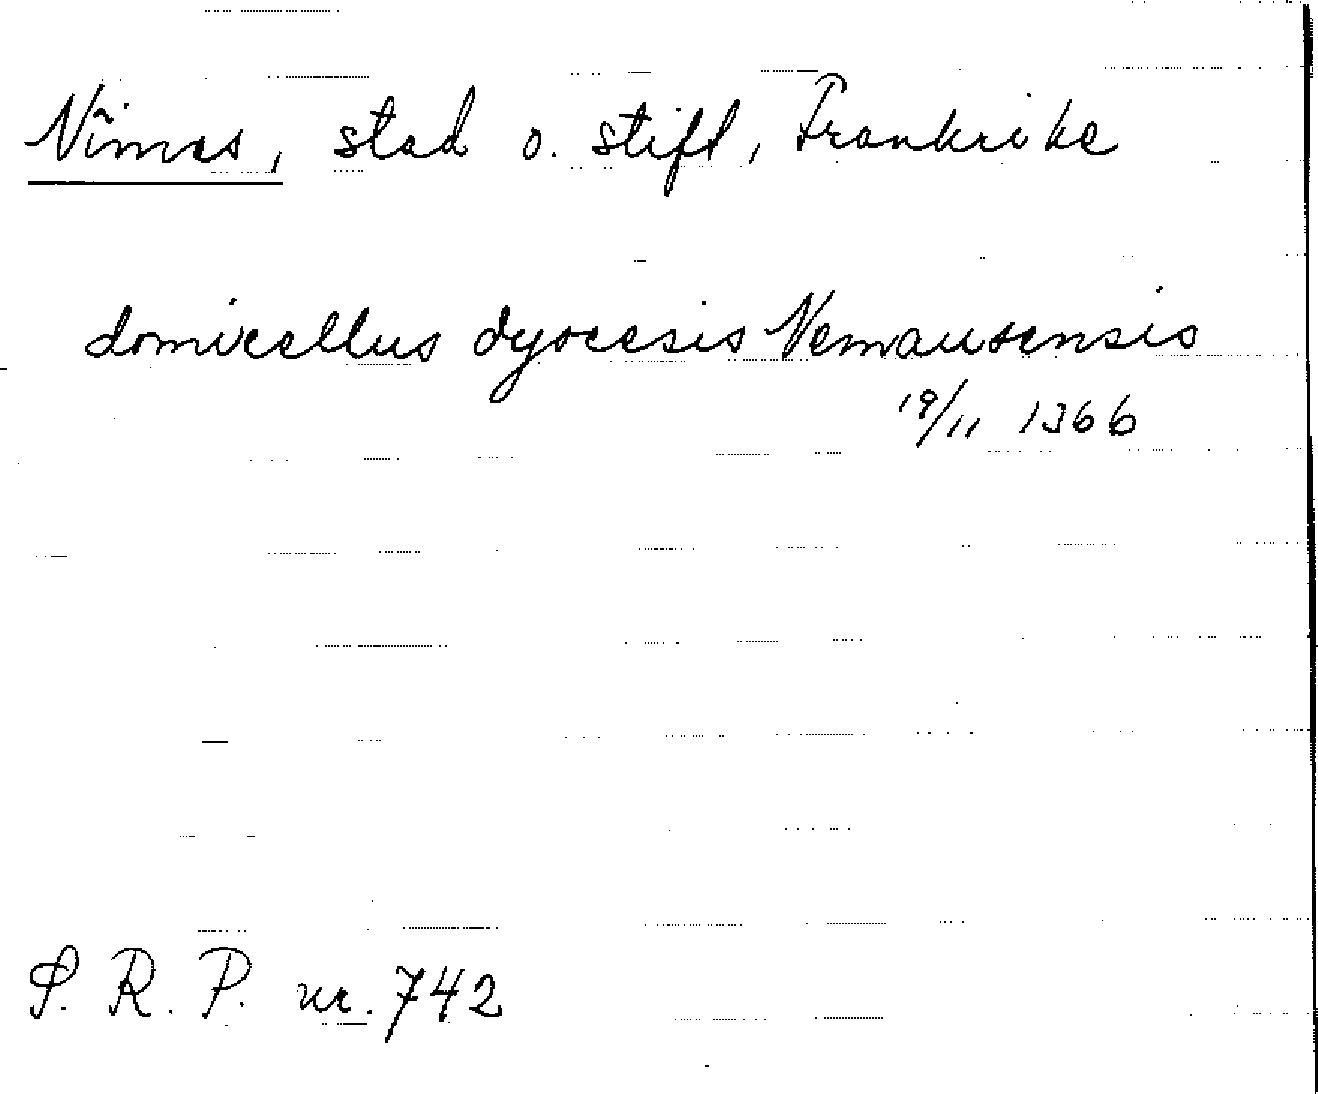 Nîmes, stad o. stift, Frankrike
domicellus dyocesis Nemausensis
19/11 1366
S. R. P. nr. 742